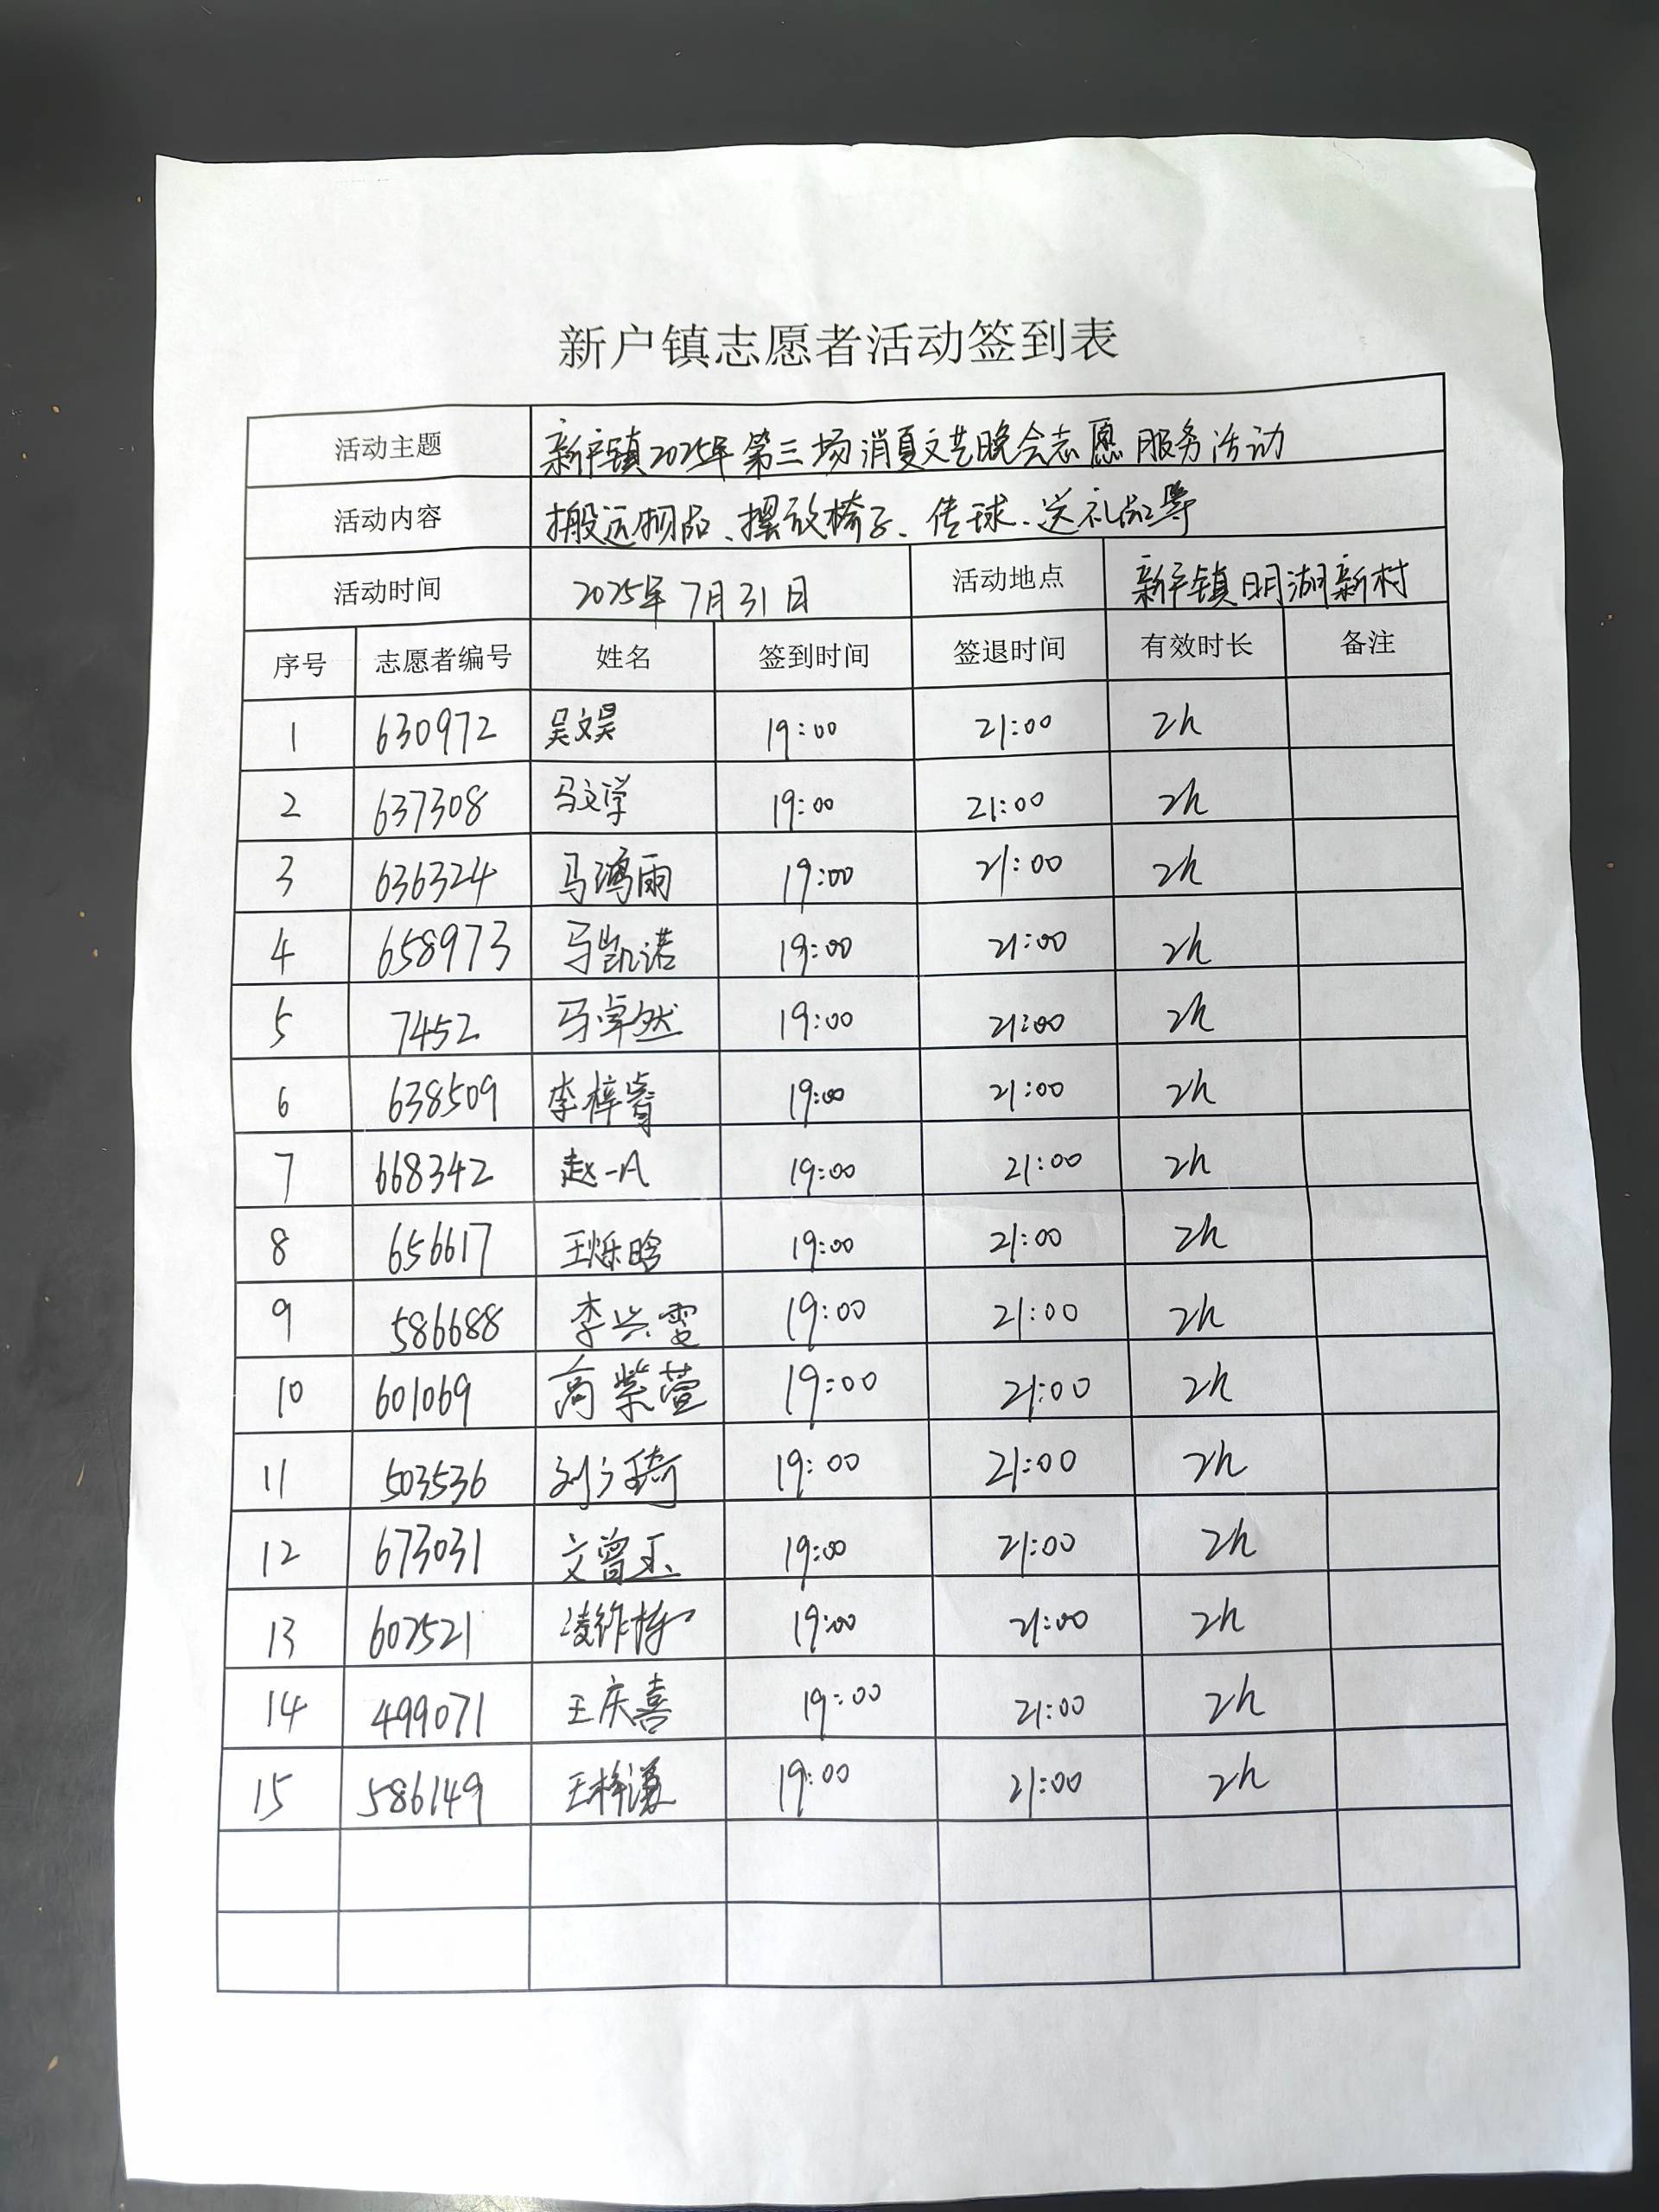 新户镇志愿者活动签到表
活动主题 新户镇2025年第三场消夏文艺晚会志愿服务活动
活动内容 搬运物品、摆放椅子、传球、送礼品等
活动时间 2025年7月31日 活动地点 新户镇明湖新村
序号 志愿者编号 姓名 签到时间 签退时间 有效时长 备注
1 630972 吴文昊 19:00 21:00 2h
2 637308 马文学 19:00 21:00 2h
3 636324 马鸿雨 19:00 21:00 2h
4 658973 马凯诺 19:00 21:00 2h
5 7452 马卓然 19:00 21:00 2h
6 638509 李梓睿 19:00 21:00 2h
7 668342 赵一 19:00 21:00 2h
8 656617 王烁晗 19:00 21:00 2h
9 586688 李兴雯 19:00 21:00 2h
10 601069 高紫萱 19:00 21:00 2h
11 503536 刘 琦 19:00 21:00 2h
12 673031 文曾玉 19:00 21:00 2h
13 602521 凌作栋 19:00 21:00 2h
14 499071 王庆喜 19:00 21:00 2h
15 586149 王梓谦 19:00 21:00 2h